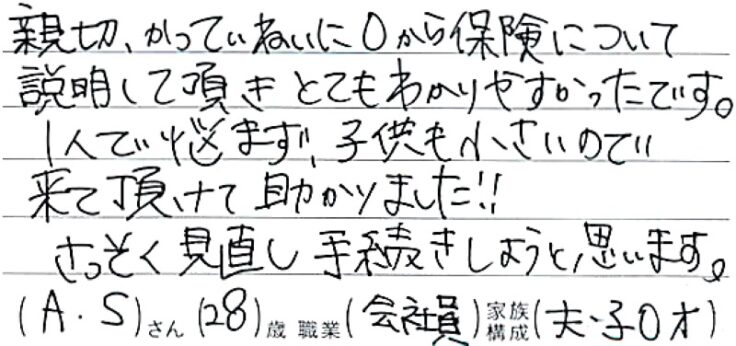 親切、かつていねいに0から保険について
説明して頂きとてもわかりやすかったです。
1人で悩まず、子供も小さいので
来て頂けて助かりました!!
さっそく見直し手続きしようと思います。
(A.S)さん(28)歳 職業(会社員)家族構成(夫・子0才)